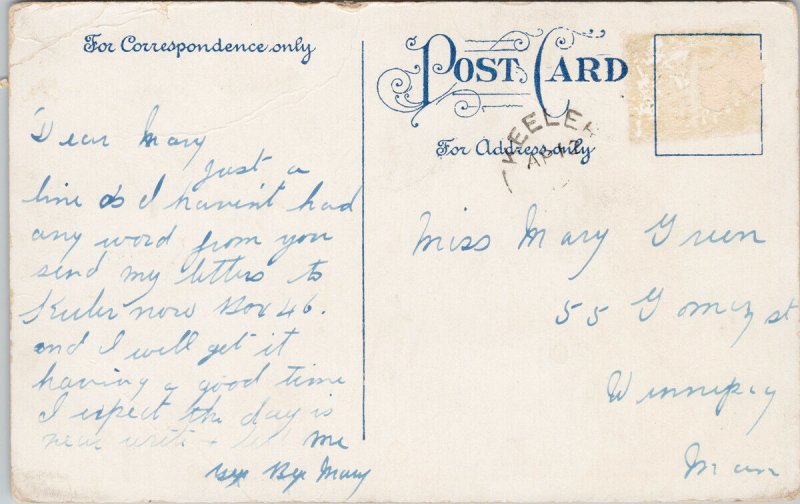 For Correspondence only
POST CARD
For Address only
KEELER
AP 17
Dear Mary
just a
line as I havent had
any word from you
send my letters to
Keeler now Box 46.
and I will get it
having a good time
I expect the day is
near write + tell me
Bye Mary
Miss Mary Green
55 Gomez st
Winnipeg
Man